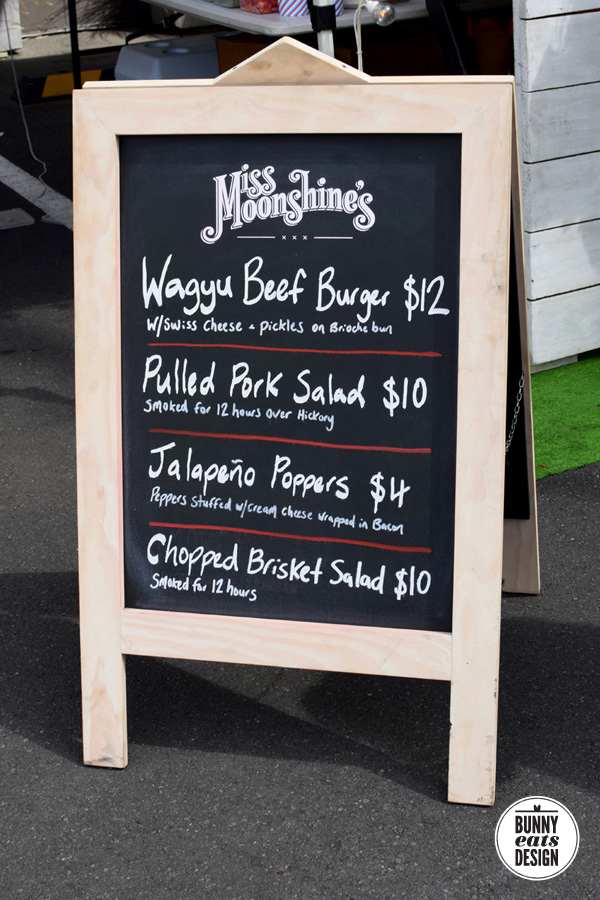 Miss
Moonshine's
Wagyu Beef Burger $12
W/Swiss Cheese + pickles on Brioche bun
Pulled Pork Salad $10
Smoked for 12 hours over Hickory
Jalapeño Poppers $4
Peppers stuffed w/cream cheese wrapped in Bacon
Chopped Brisket Salad $10
Smoked for 12 hours
BUNNY
eats
DESIGN